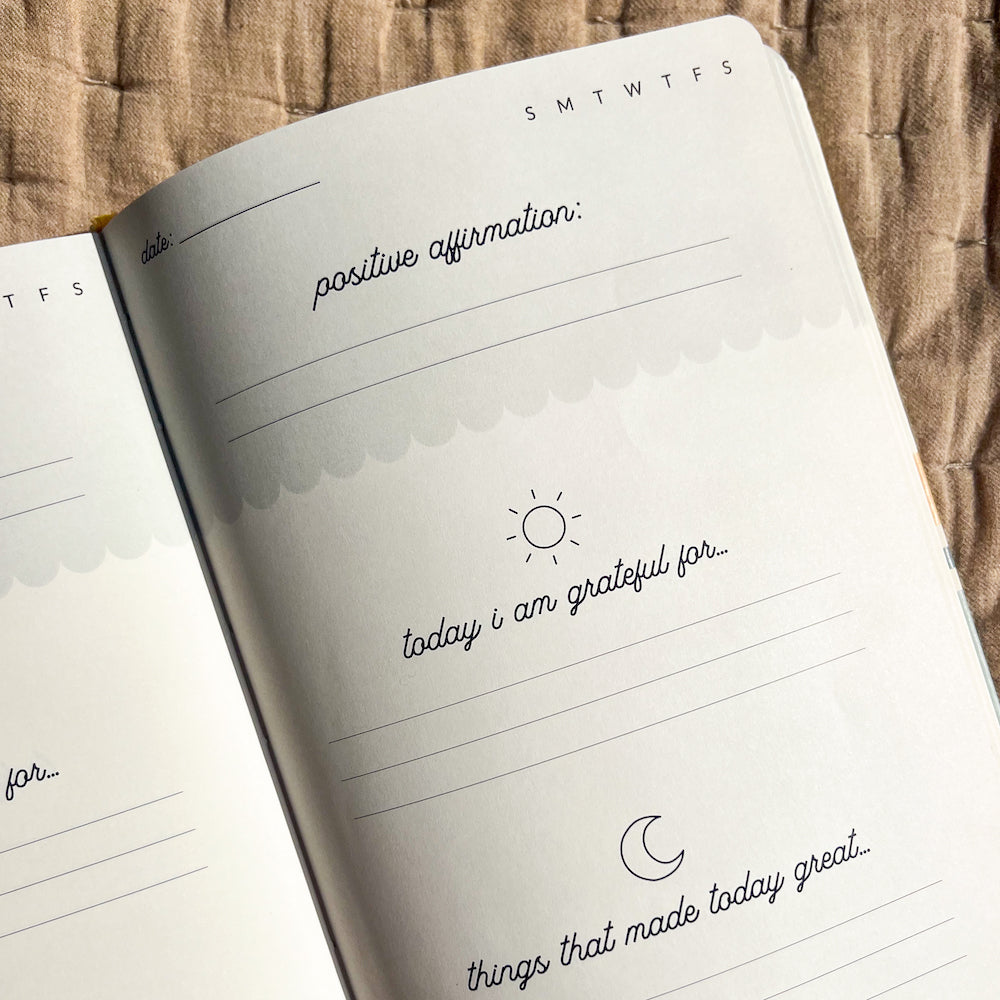 T F S
for...
S M T W T F S
date:
positive affirmation:
today i am grateful for...
things that made today great...